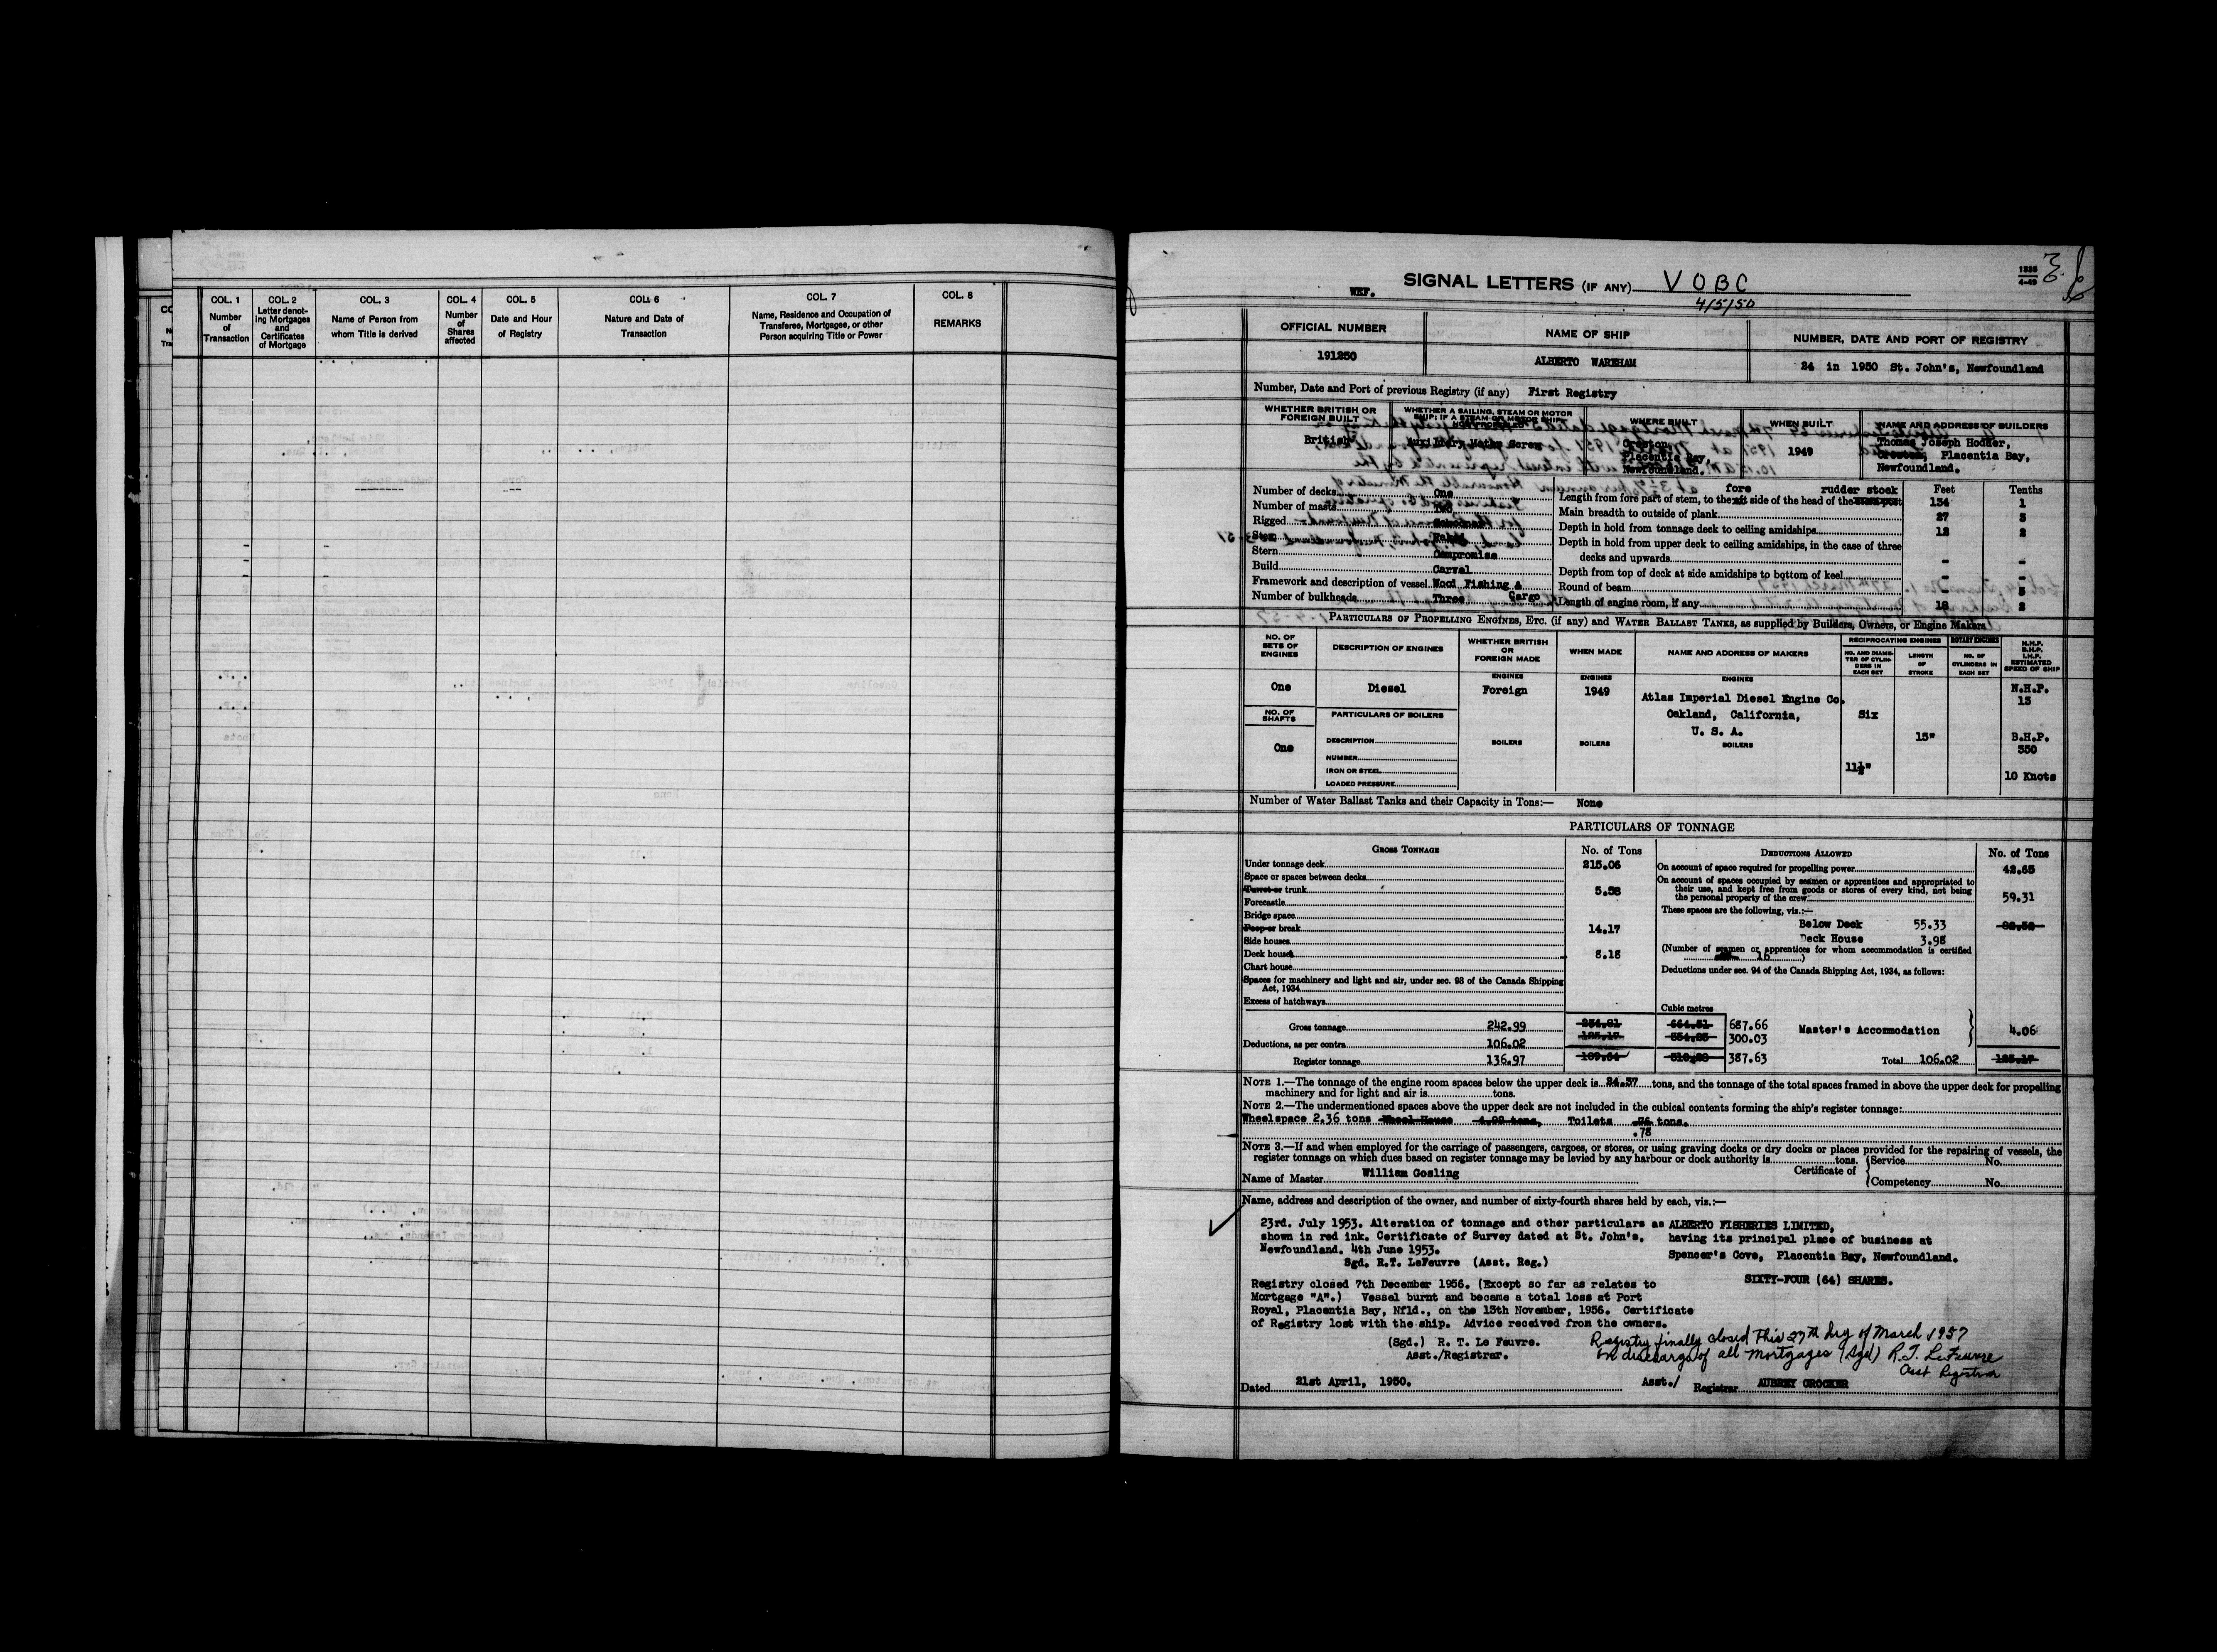 COL. 1
Number
of
Transaction
COL. 2
Letter denot-
ing Mortgages
and
Certificates
of Mortgage
COL. 3
Name of Person from
whom Title is derived
COL. 4
Number
of
Shares
affected
COL. 5
Date and Hour
of Registry
COL. 6
Nature and Date of
Transaction
COL. 7
Name, Residence and Occupation of
Transferee, Mortgagee, or other
Person acquiring Title or Power
COL. 8
REMARKS
1835
4-49
WKF. SIGNAL LETTERS (IF ANY) V O B C
4/5/50
OFFICIAL NUMBER NAME OF SHIP NUMBER, DATE AND PORT OF REGISTRY
191250 ALBERTO WAREHAM 24 in 1950 St. John's, Newfoundland
Number, Date and Port of previous Registry (if any) First Registry
WHETHER BRITISH OR
FOREIGN BUILT
WHETHER A SAILING, STEAM OR MOTOR
SHIP; IF A STEAM OR MOTOR SHIP,
HOW PROPELLED
WHERE BUILT WHEN BUILT NAME AND ADDRESS OF BUILDERS
British
Creston,
Placentia Bay,
Newfoundland.
1949
Thomas Joseph Hodder,
Creston, Placentia Bay,
Newfoundland.
Number of decks One
Number of masts Two
Rigged
Stem
Stern Compromise
Build Carvel
Framework and description of vessel Wood Fishing &
Cargo
Number of bulkheads Three
Feet Tenths
fore rudder stock
Length from fore part of stem, to the aft side of the head of the stern post 134 1
Main breadth to outside of plank 27 3
Depth in hold from tonnage deck to ceiling amidships 12 2
Depth in hold from upper deck to ceiling amidships, in the case of three
decks and upwards - -
Depth from top of deck at side amidships to bottom of keel - -
Round of beam - 5
Length of engine room, if any 18 2
PARTICULARS OF PROPELLING ENGINES, ETC. (if any) and WATER BALLAST TANKS, as supplied by Builders, Owners, or Engine Makers
NO. OF
SETS OF
ENGINES
DESCRIPTION OF ENGINES
WHETHER BRITISH
OR
FOREIGN MADE
WHEN MADE
NAME AND ADDRESS OF MAKERS
RECIPROCATING ENGINES
ROTARY ENGINES
NO. AND DIAME-
TER OF CYLIN-
DERS IN
EACH SET
LENGTH
OF
STROKE
NO. OF
CYLINDERS IN
EACH SET
N.H.P.
B.H.P.
I.H.P.
ESTIMATED
SPEED OF SHIP
ENGINES ENGINES ENGINES
One Diesel Foreign 1949
Atlas Imperial Diesel Engine Co.
Oakland, California,
U. S. A.
Six
11½"
15"
N.H.P.
13
B.H.P.
350
10 Knots
NO. OF
SHAFTS
One
PARTICULARS OF BOILERS
DESCRIPTION
NUMBER
IRON OR STEEL
LOADED PRESSURE
BOILERS BOILERS BOILERS
Number of Water Ballast Tanks and their Capacity in Tons:— None
PARTICULARS OF TONNAGE
GROSS TONNAGE No. of Tons
Under tonnage deck 215.06
Space or spaces between decks
Turret or trunk 5.58
Forecastle
Bridge space
Poop or break 14.17
Side houses
Deck houses 8.18
Chart house
Spaces for machinery and light and air, under sec. 93 of the Canada Shipping
Act, 1934
Excess of hatchways
Cubic metres
Gross tonnage 242.99 687.66
Deductions, as per contra 106.02 125.17 300.03
Register tonnage 136.97 109.64 387.63
DEDUCTIONS ALLOWED No. of Tons
On account of space required for propelling power 42.65
On account of spaces occupied by seamen or apprentices and appropriated to
their use, and kept free from goods or stores of every kind, not being
the personal property of the crew 59.31
These spaces are the following, viz.:—
Below Deck 55.33
Deck House 3.98
(Number of seamen or apprentices for whom accommodation is certified
16 )
Deductions under sec. 94 of the Canada Shipping Act, 1934, as follows:
Master's Accommodation 4.06
Total 106.02 125.17
NOTE 1.—The tonnage of the engine room spaces below the upper deck is 24.37 tons, and the tonnage of the total spaces framed in above the upper deck for propelling
machinery and for light and air is tons.
NOTE 2.—The undermentioned spaces above the upper deck are not included in the cubical contents forming the ship's register tonnage:
Wheelspace 2.36 tons Wheel House 4.98 tons, Toilets .76 tons.
.78
NOTE 3.—If and when employed for the carriage of passengers, cargoes, or stores, or using graving docks or dry docks or places provided for the repairing of vessels, the
register tonnage on which dues based on register tonnage may be levied by any harbour or dock authority is tons.
Name of Master William Gosling
Certificate of Service No.
Competency No.
Name, address and description of the owner, and number of sixty-fourth shares held by each, viz.:—
23rd. July 1953. Alteration of tonnage and other particulars as
shown in red ink. Certificate of Survey dated at St. John's.
Newfoundland. 4th June 1953.
Sgd. R.T. LeFeuvre (Asst. Reg.)
ALBERTO FISHERIES LIMITED,
having its principal place of business at
Spencer's Cove, Placentia Bay, Newfoundland.
SIXTY-FOUR (64) SHARES.
Registry closed 7th December 1956. (Except so far as relates to
Mortgage "A".) Vessel burnt and became a total loss at Port
Royal, Placentia Bay, Nfld., on the 13th November, 1956. Certificate
of Registry lost with the ship. Advice received from the owners.
(Sgd.) R. T. Le Feuvre.
Asst./Registrar.
Registry finally closed This 27th day of March 1957
on discharge of all mortgages (Sgd) R.T. LeFeuvre
Asst Registrar
Dated 21st April, 1950. Asst./ Registrar AUBREY CROCKER